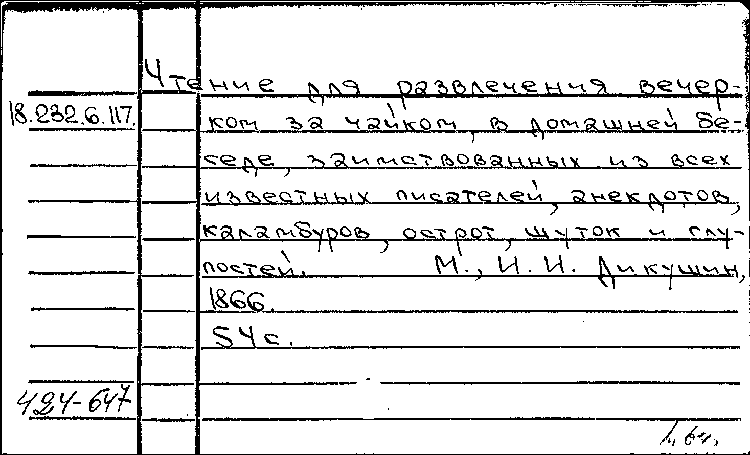 Чтение для развлечения вечер-
18.232.6.117 ком за чайком, в домашней бе-
седе, заимствованных из всех
известных писателей, анекдотов,
каламбуров, острот, шуток и глу-
постей. М., И. И. Дикушин,
1866.
54 с.
424-647